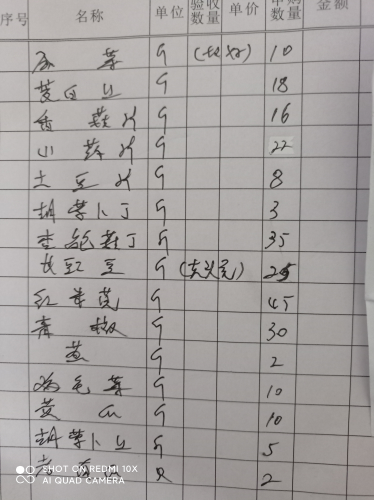 序号 名称 单位 验收数量 单价 申购数量 金额
G 10
G 18
香菇片 G 16
小 片 G 22
土豆片 G 8
胡萝卜丁 G 3
杏鲍菇丁 G 35
长豇豆 G (去头尾) 25
红 G 45
青椒 G 30
葱 G 2
鸡毛菜 G 10
黄瓜 G 10
胡萝卜丝 G 5
2
SHOT ON REDMI 10X
AI QUAD CAMERA